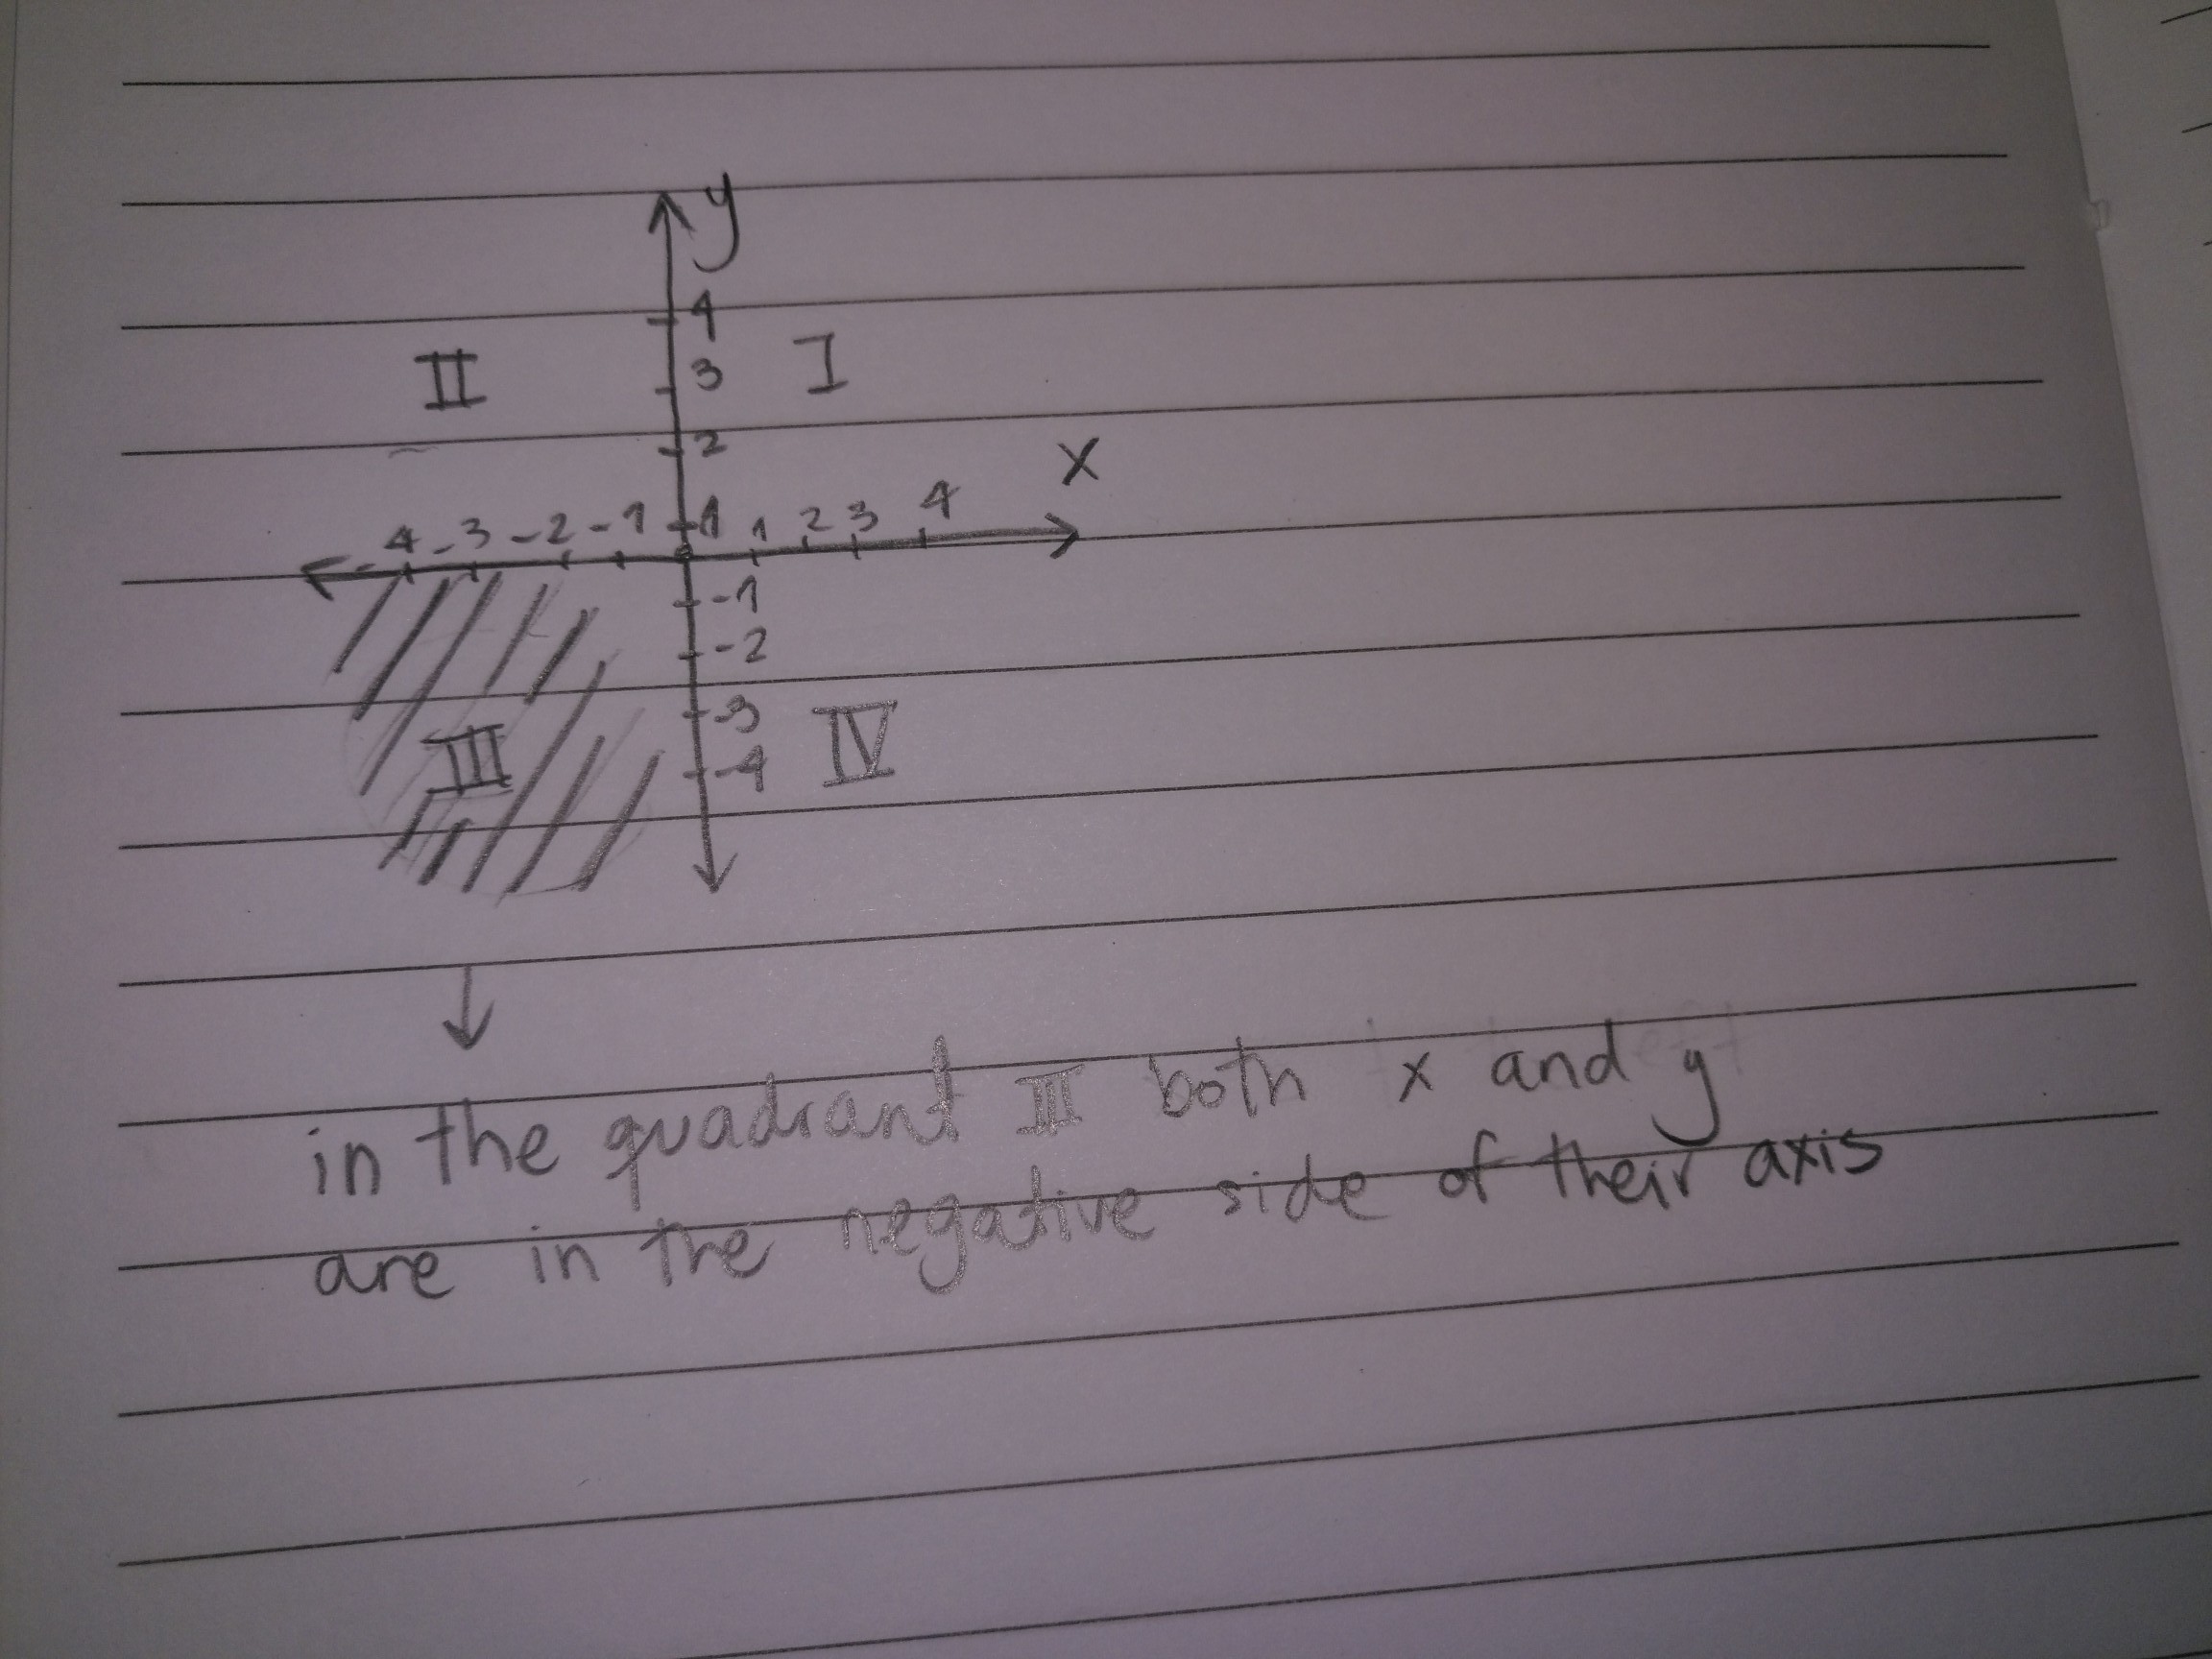 y
4
II
3
I
2
x
-4 -3 -2 -1 1 1 2 3 4
-1
-2
-3
III
IV
-4
in the quadrant III both x and y
are in the negative side of their axis